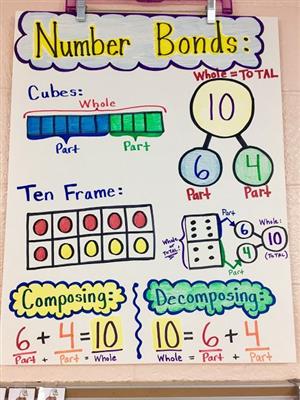 Number Bonds:
Whole = TOTAL
Cubes:
Whole
Part
Part
10
6
4
Part
Part
Ten Frame:
Whole
or
TOTAL
Part
Part
6
4
Whole:
10
(TOTAL)
Composing:
6 + 4 = 10
Part + Part = Whole
Decomposing:
10 = 6 + 4
Whole = Part + Part